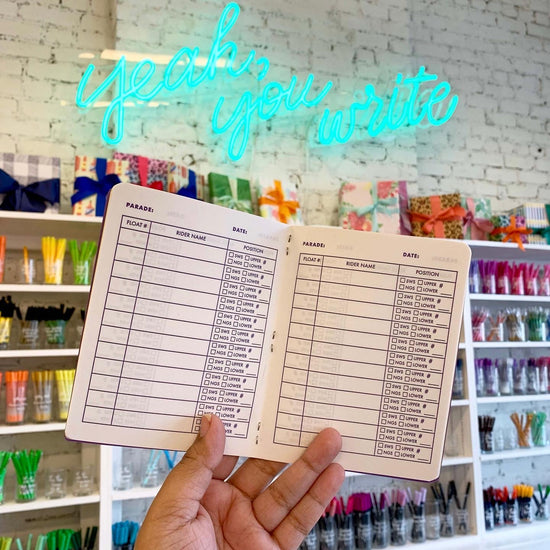 yeah,
you write
PARADE: DATE:
FLOAT # RIDER NAME POSITION
SWS UPPER #
NGS LOWER
SWS UPPER #
NGS LOWER
SWS UPPER #
NGS LOWER
SWS UPPER #
NGS LOWER
SWS UPPER #
NGS LOWER
SWS UPPER #
NGS LOWER
SWS UPPER #
NGS LOWER
SWS UPPER #
NGS LOWER
SWS UPPER #
NGS LOWER
SWS UPPER #
NGS LOWER
SWS UPPER #
LOWER
PARADE: DATE:
FLOAT # RIDER NAME POSITION
SWS UPPER #
NGS LOWER
SWS UPPER #
NGS LOWER
SWS UPPER #
NGS LOWER
SWS UPPER #
NGS LOWER
SWS UPPER #
NGS LOWER
SWS UPPER #
NGS LOWER
SWS UPPER #
NGS LOWER
SWS UPPER #
NGS LOWER
SWS UPPER #
NGS LOWER
SWS UPPER #
NGS LOWER
SWS UPPER #
NGS LOWER
SWS UPPER #
NGS LOWER